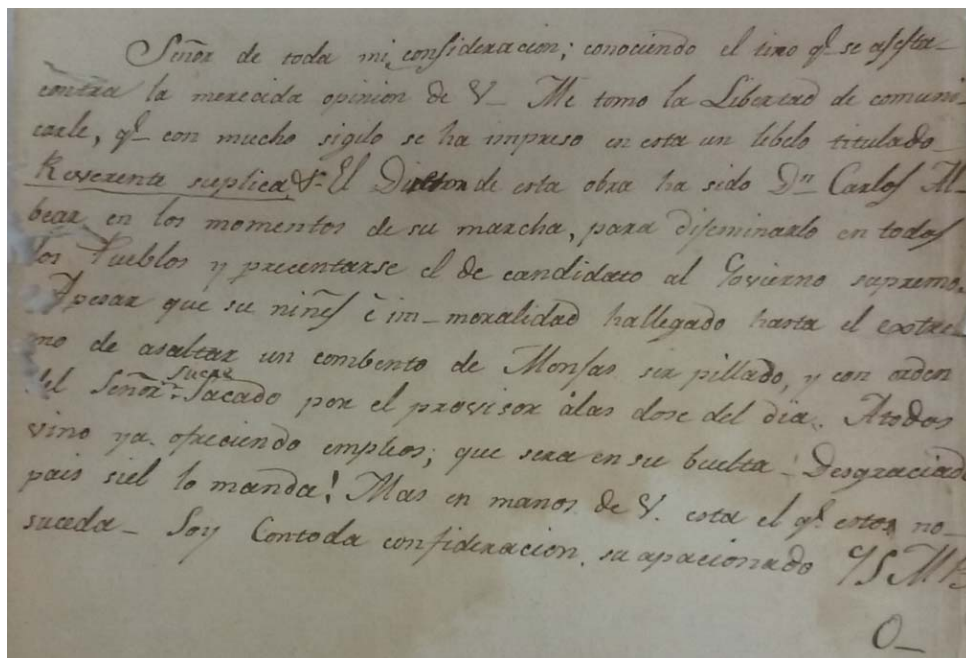 Señor de toda mi consideracion; conociendo el tiro qe. se asesta-
contra la merecida opinion de V- Me tomo la Libertad de comuni-
carle, qe- con mucho sigilo se ha impreso en esta un lebelo titulado-
Reverente suplica &a. El Director de esta obra ha sido Dn Carlos Al-
bear en los momentos de su marcha, para diseminarlo en todas
los Pueblos y precentarse el de candidato al Govierno supremo.
Apesar que su niñes é im-moralidad hallegado hasta el extre-
mo de asaltar un combento de Monjas ser pillado, y con orden
del Señor Sucre Sacado por el provisor álas dose del dia. Atodos
vino ya ofreciendo empleos; que sera en su buelta- Desgraciado
pais siel lo manda! Mas en manos de V. esta el qe. estos no-
suceda- Soy Contoda consideracion su apacionado QSMB
O-